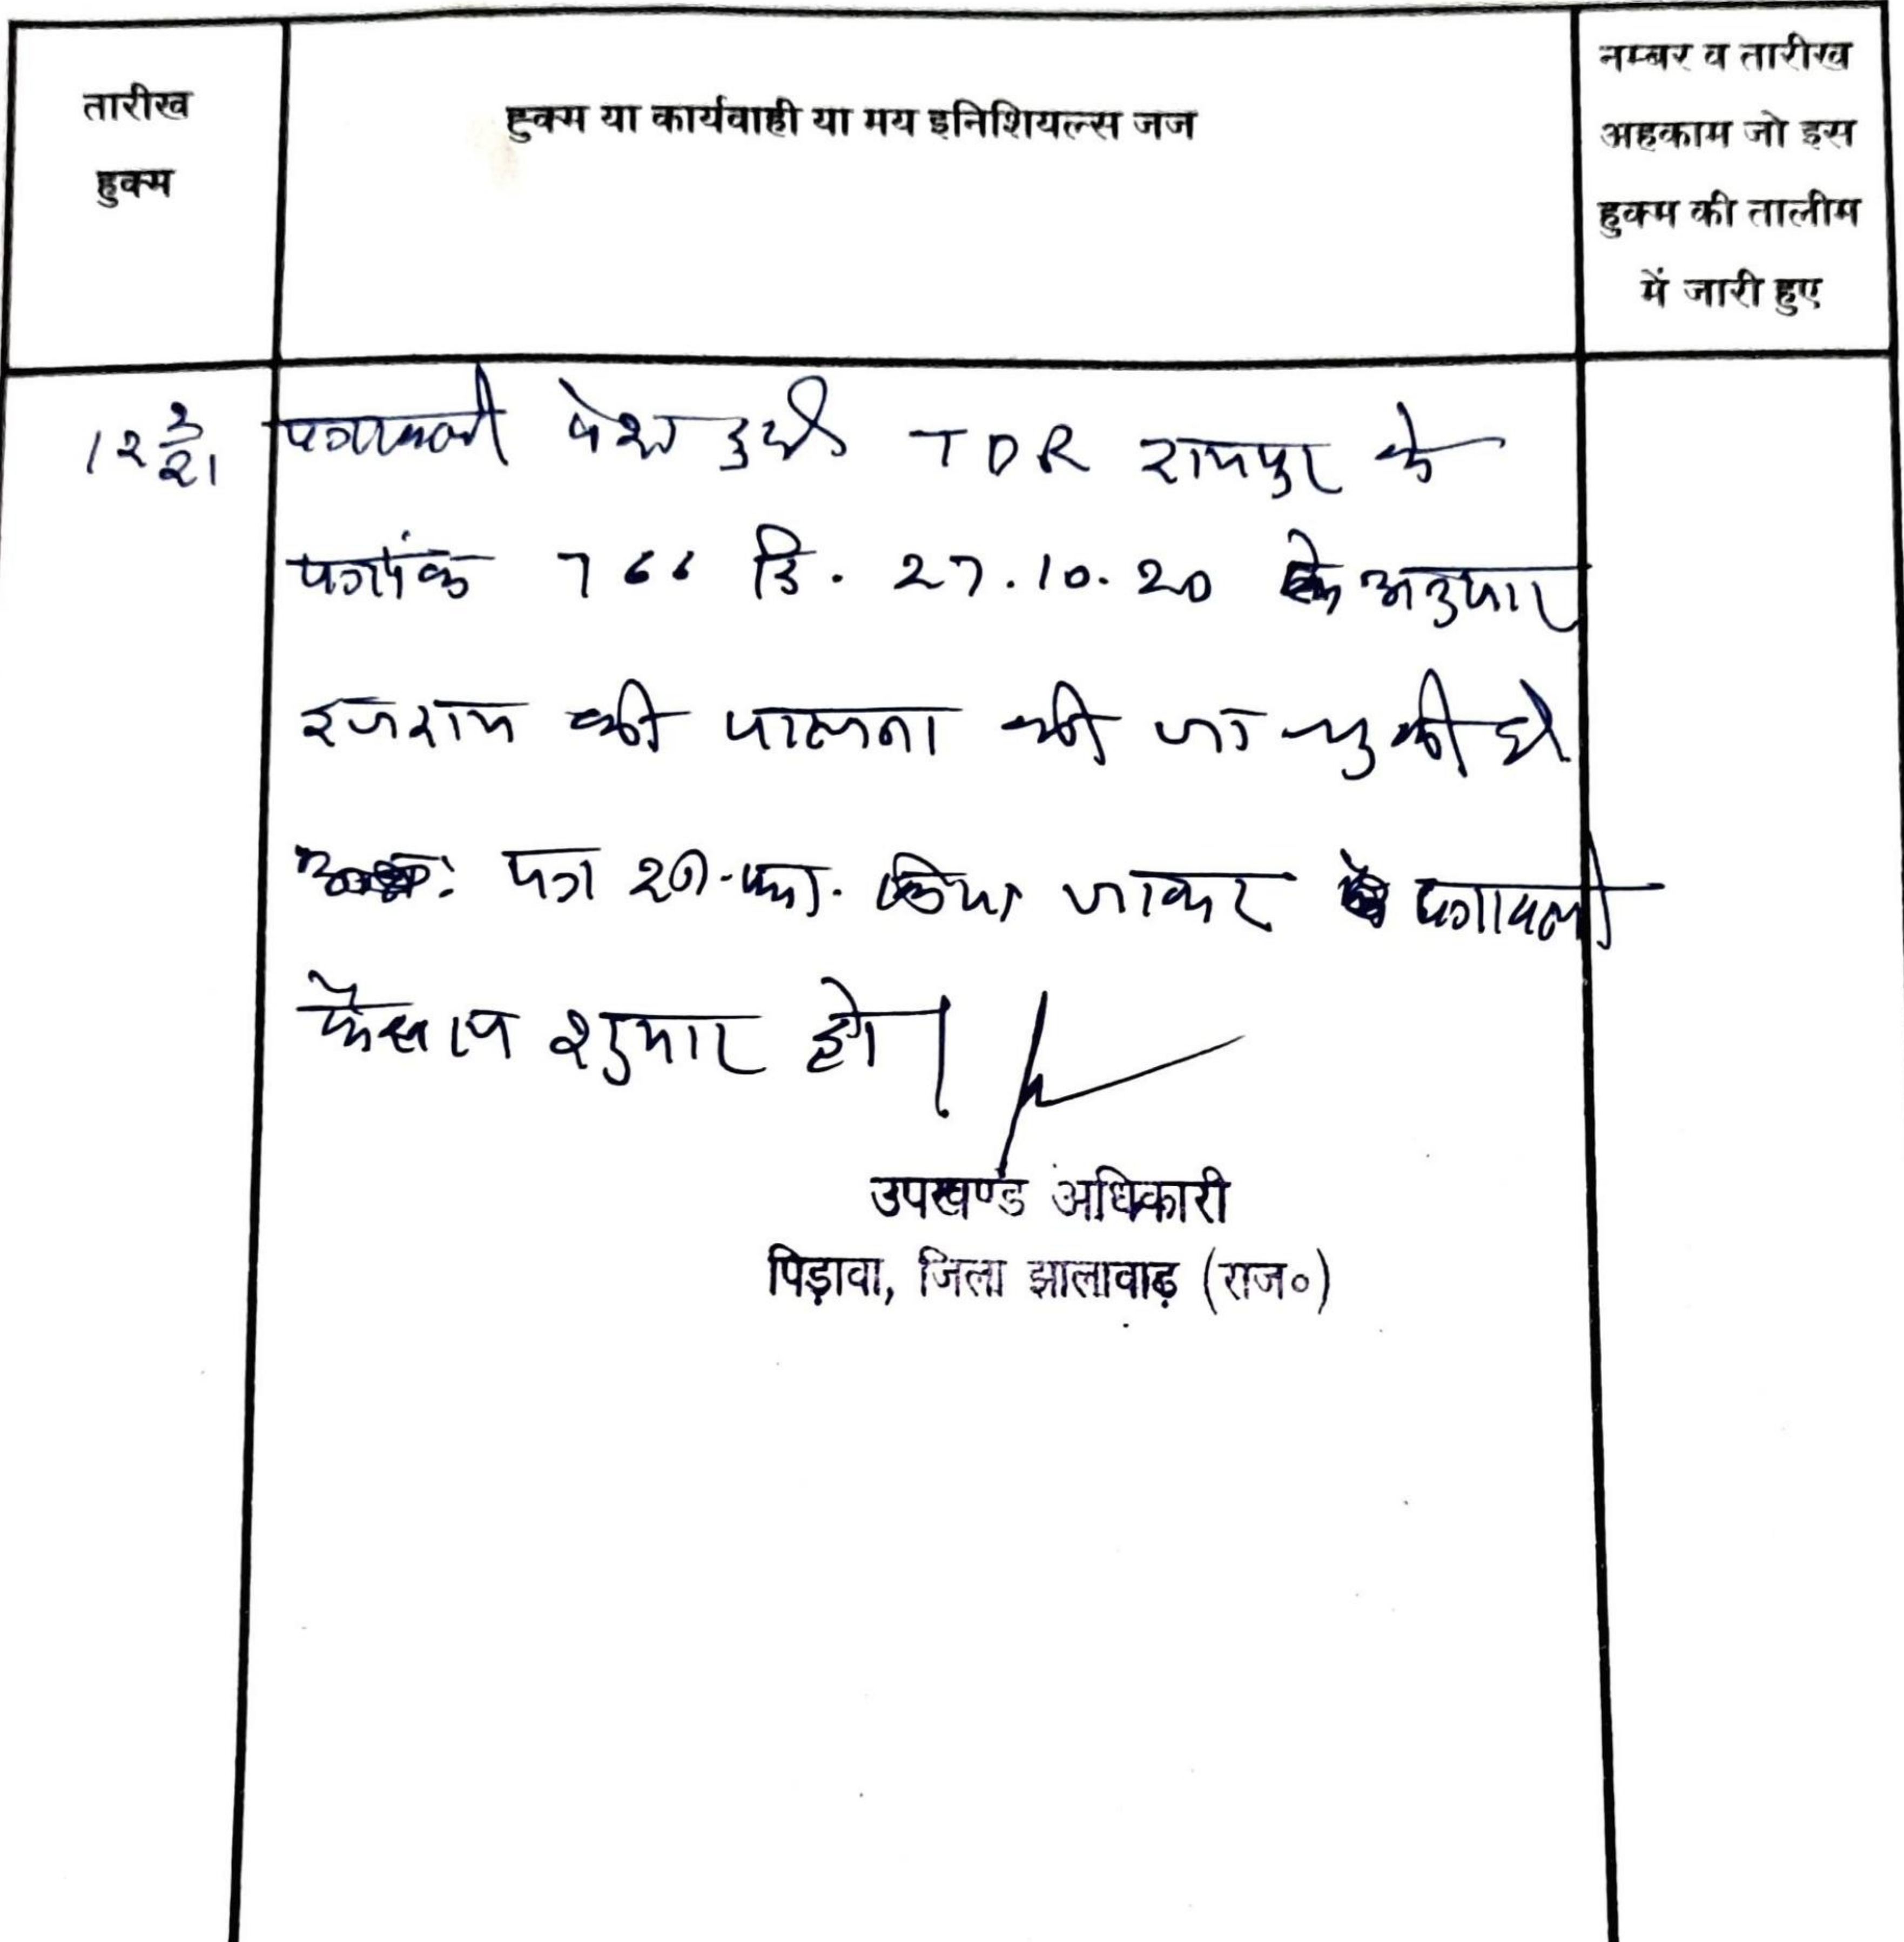 तारीख
हुक्म
हुक्म या कार्यवाही या मय इनिशियल्स जज
नम्बर व तारीख
अहकाम जो इस
हुक्म की तालीम
में जारी हुए
12 2/21
पत्रावली पेश हुयी TDR रायपुर के
पत्रांक 766 दि. 27.10.20 के अनुसार
इजराय की पालना की जा चुकी है
पत्र शा.फा. किया जाकर पत्रावली
फैसल शुमार हो।
उपखण्ड अधिकारी
पिड़ावा, जिला झालावाड़ (राज०)